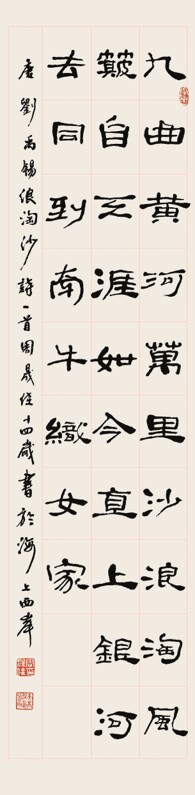 九曲黄河萬里沙浪淘風
簸自天涯如今直上銀河
去同到南牛織女家
唐劉禹錫浪淘沙詩一首周晟十四歲書於海上西